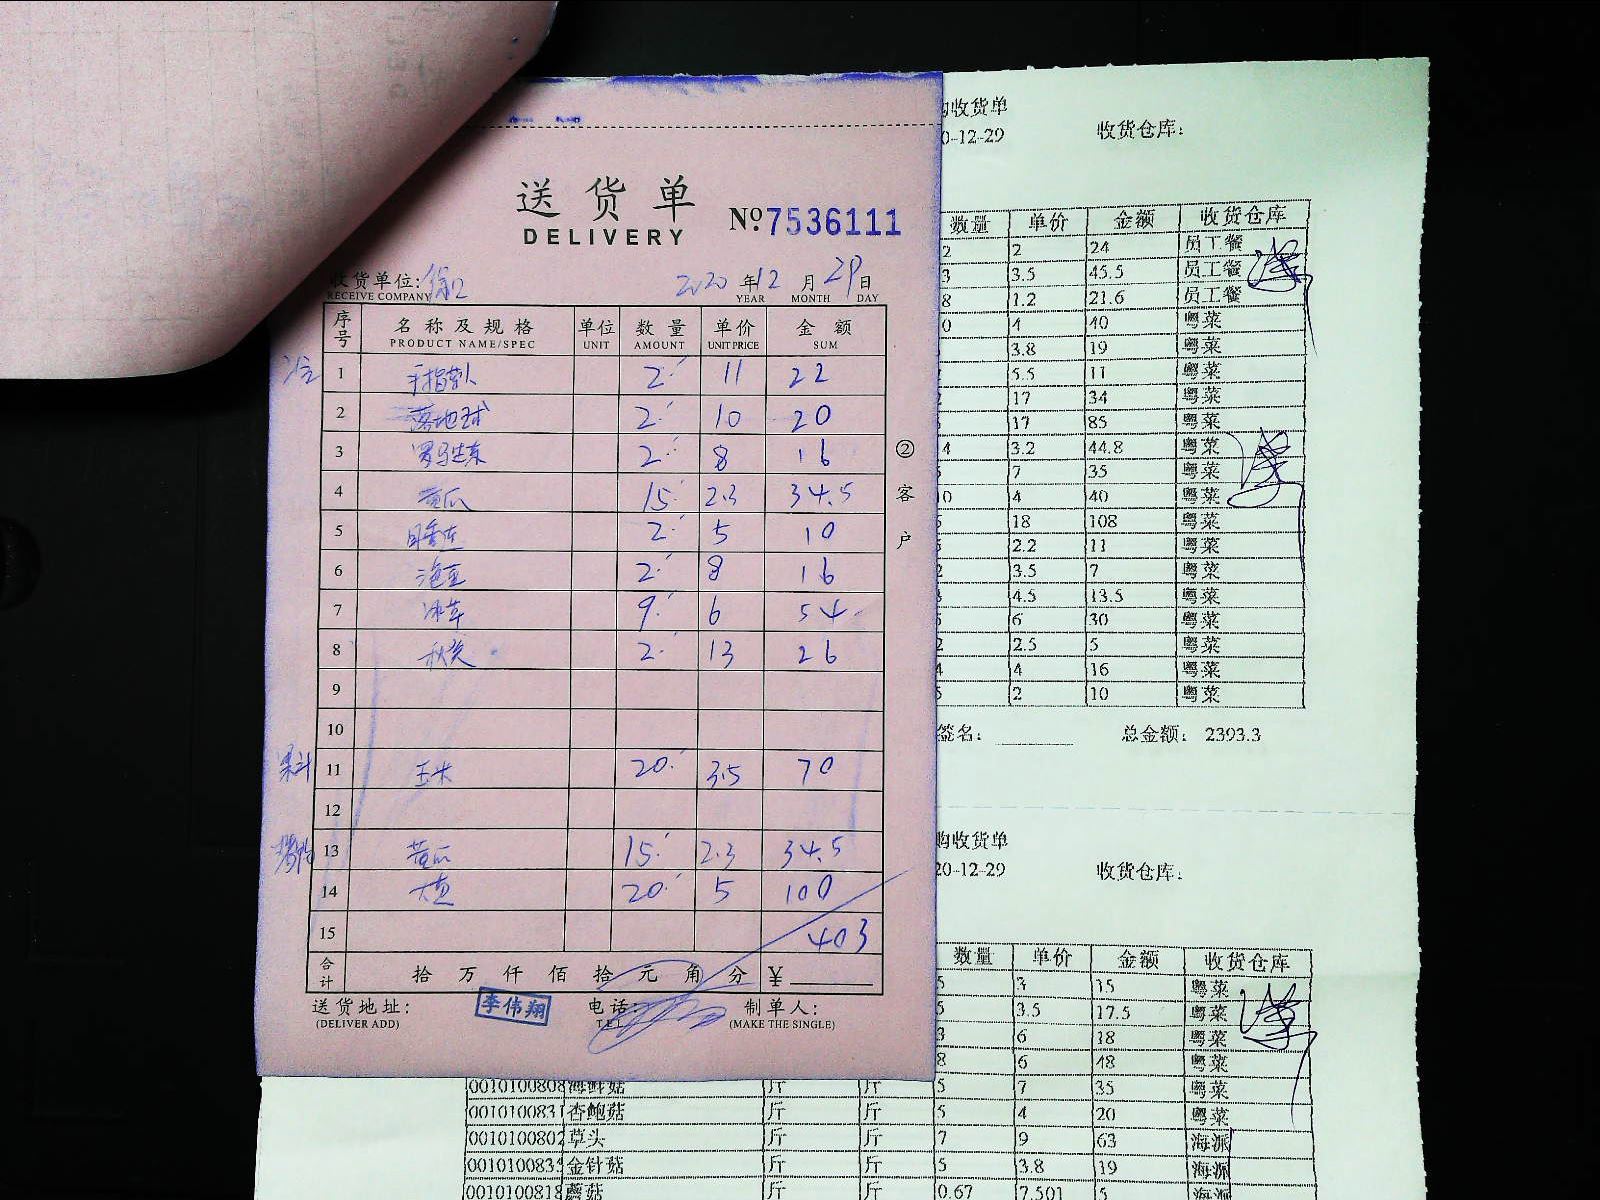 送货单
DELIVERY
Nº 7536111
收货单位:
RECEIVE COMPANY
2020 年 12 月 29 日
YEAR MONTH DAY
序号 名称及规格 单位 数量 单价 金额
PRODUCT NAME/SPEC UNIT AMOUNT UNIT PRICE SUM
1 手指萝卜 2 11 22
2 落地球 2 10 20
3 罗马生菜 2 8 16
4 黄瓜 15 2.3 34.5
5 2 5 10
6 2 8 16
7 冰草 9 6 54
8 秋葵 2 13 26
9
10
果汁 11 玉米 20 3.5 70
12
13 黄瓜 15 2.3 34.5
14 20 5 100
15 403
合计 拾 万 仟 佰 拾 元 角 分 ¥
送货地址: 李伟翔 电话: 制单人:
(DELIVER ADD) TEL (MAKE THE SINGLE)
② 客户
购收货单
0-12-29 收货仓库:
数量 单价 金额 收货仓库
2 2 24 员工餐
3 3.5 45.5 员工餐
8 1.2 21.6 员工餐
0 4 40 粤菜
3.8 19 粤菜
5.5 11 粤菜
17 34 粤菜
17 85 粤菜
4 3.2 44.8 粤菜
7 35 粤菜
0 4 40 粤菜
18 108 粤菜
2.2 11 粤菜
2 3.5 7 粤菜
4.5 13.5 粤菜
6 30 粤菜
2 2.5 5 粤菜
4 4 16 粤菜
5 2 10 粤菜
签名: 总金额: 2393.3
购收货单
20-12-29 收货仓库:
数量 单价 金额 收货仓库
5 3 15 粤菜
5 3.5 17.5 粤菜
3 6 18 粤菜
8 6 48 粤菜
0010100808 海鲜菇 斤 斤 5 7 35 粤菜
0010100831 杏鲍菇 斤 斤 5 4 20 粤菜
0010100802 草头 斤 斤 7 9 63 海派
001010083 金针菇 斤 斤 5 3.8 19 海派
0010100818 蘑菇 斤 斤 0.67 7.501 5 海派